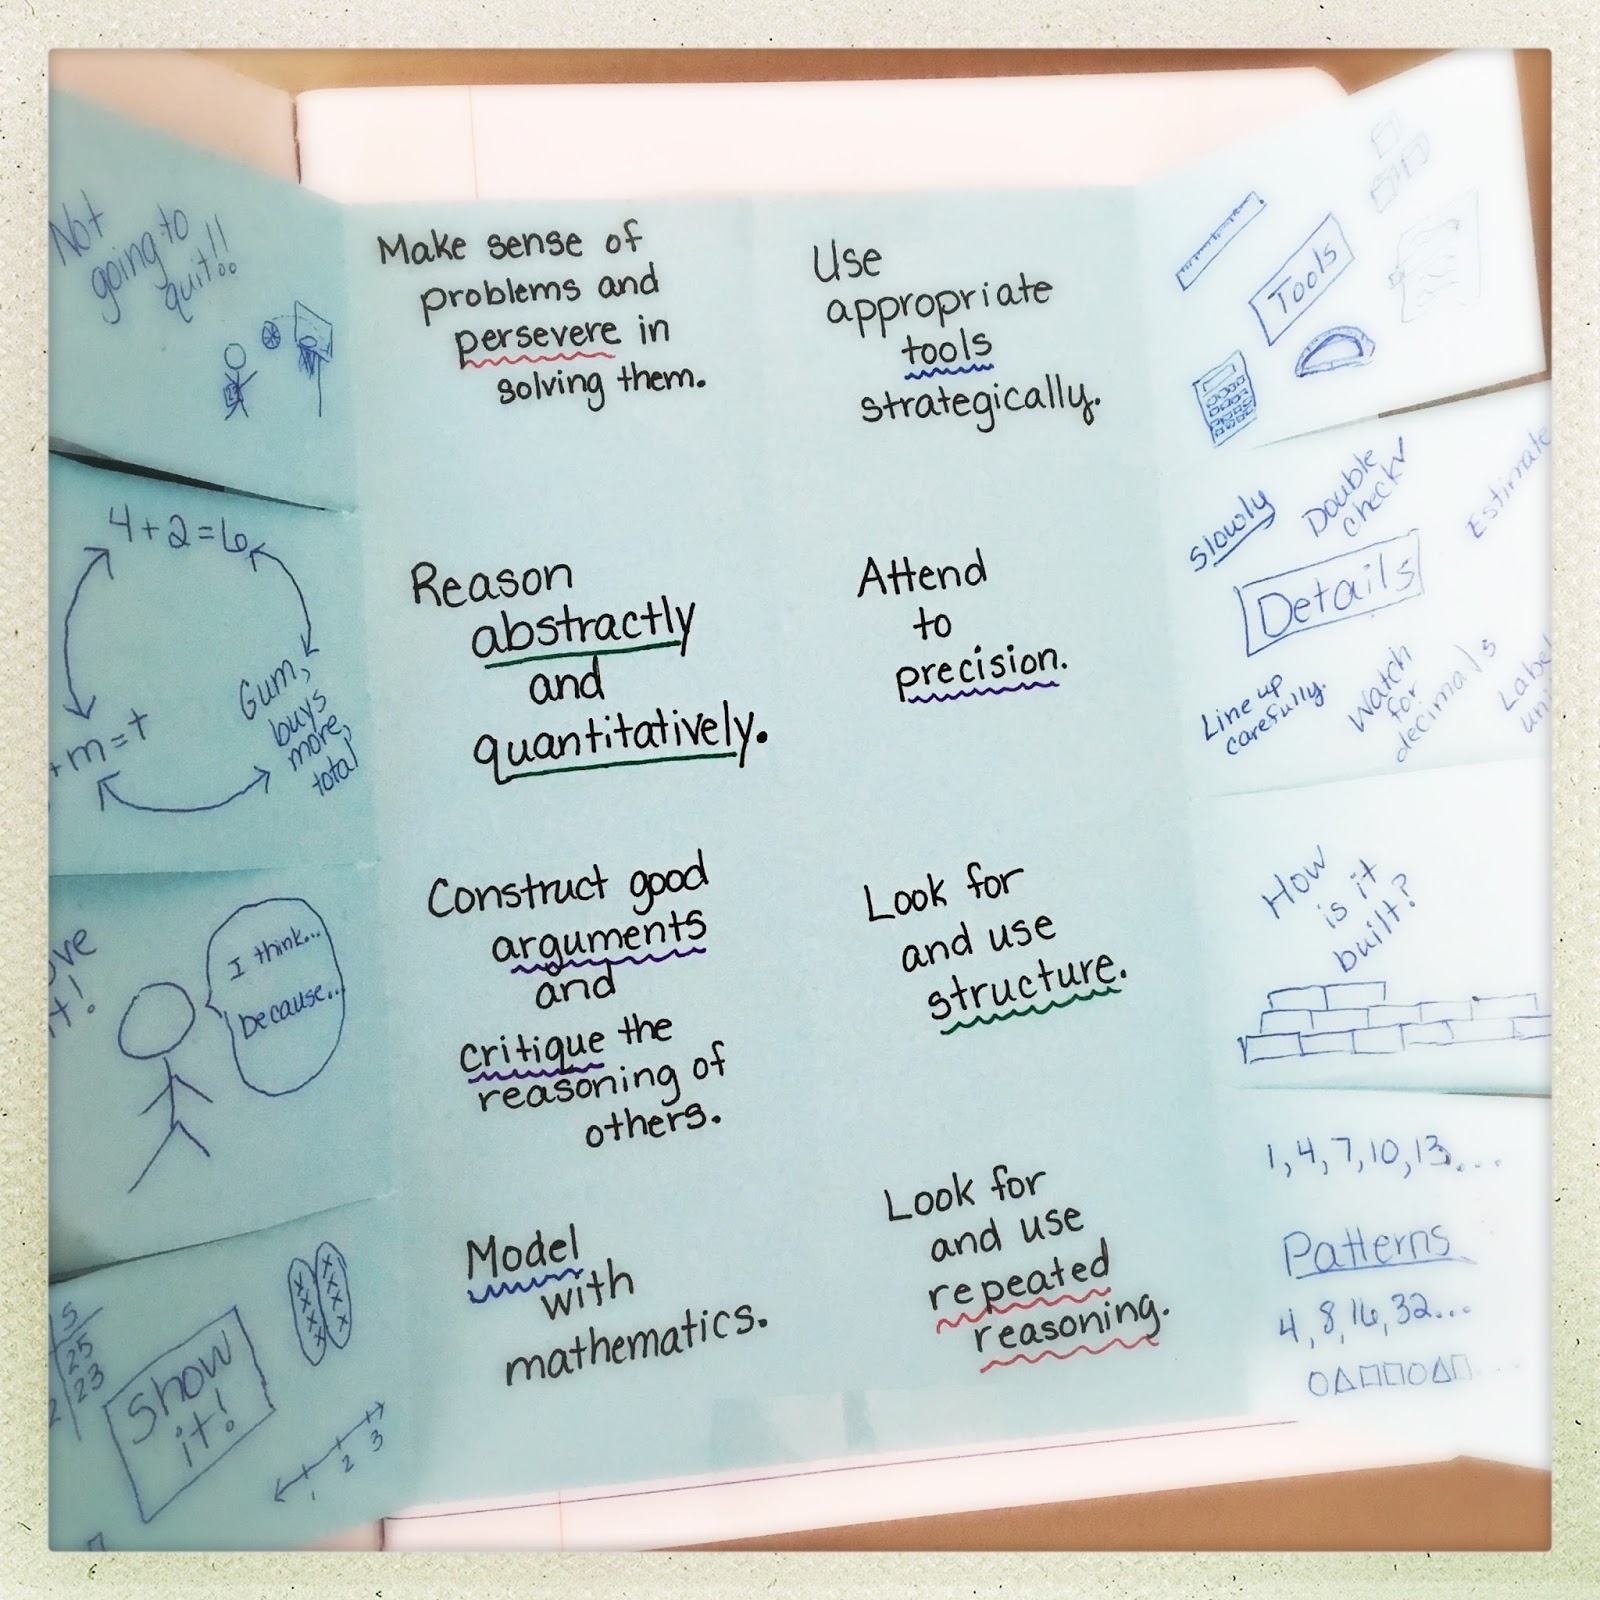 Not
going to
quit!!
Make sense of
problems and
persevere in
solving them.
Use
appropriate
tools
strategically.
Tools
4+2=6
Gum,
buys
more,
total
+m=t
Reason
abstractly
and
quantitatively.
Attend
to
precision.
Slowly
Double
check✓
Estimate
Details
Line up
carefully.
Watch
for
decimals
Label
I think...
because...
Construct good
arguments
and
critique the
reasoning of
others.
Look for
and use
structure.
How
is it
built?
5
25
23
Show
it!
xxxx
xxxx
1 2 3
Model
with
mathematics.
Look for
and use
repeated
reasoning.
1, 4, 7, 10, 13....
Patterns
4, 8, 16, 32...